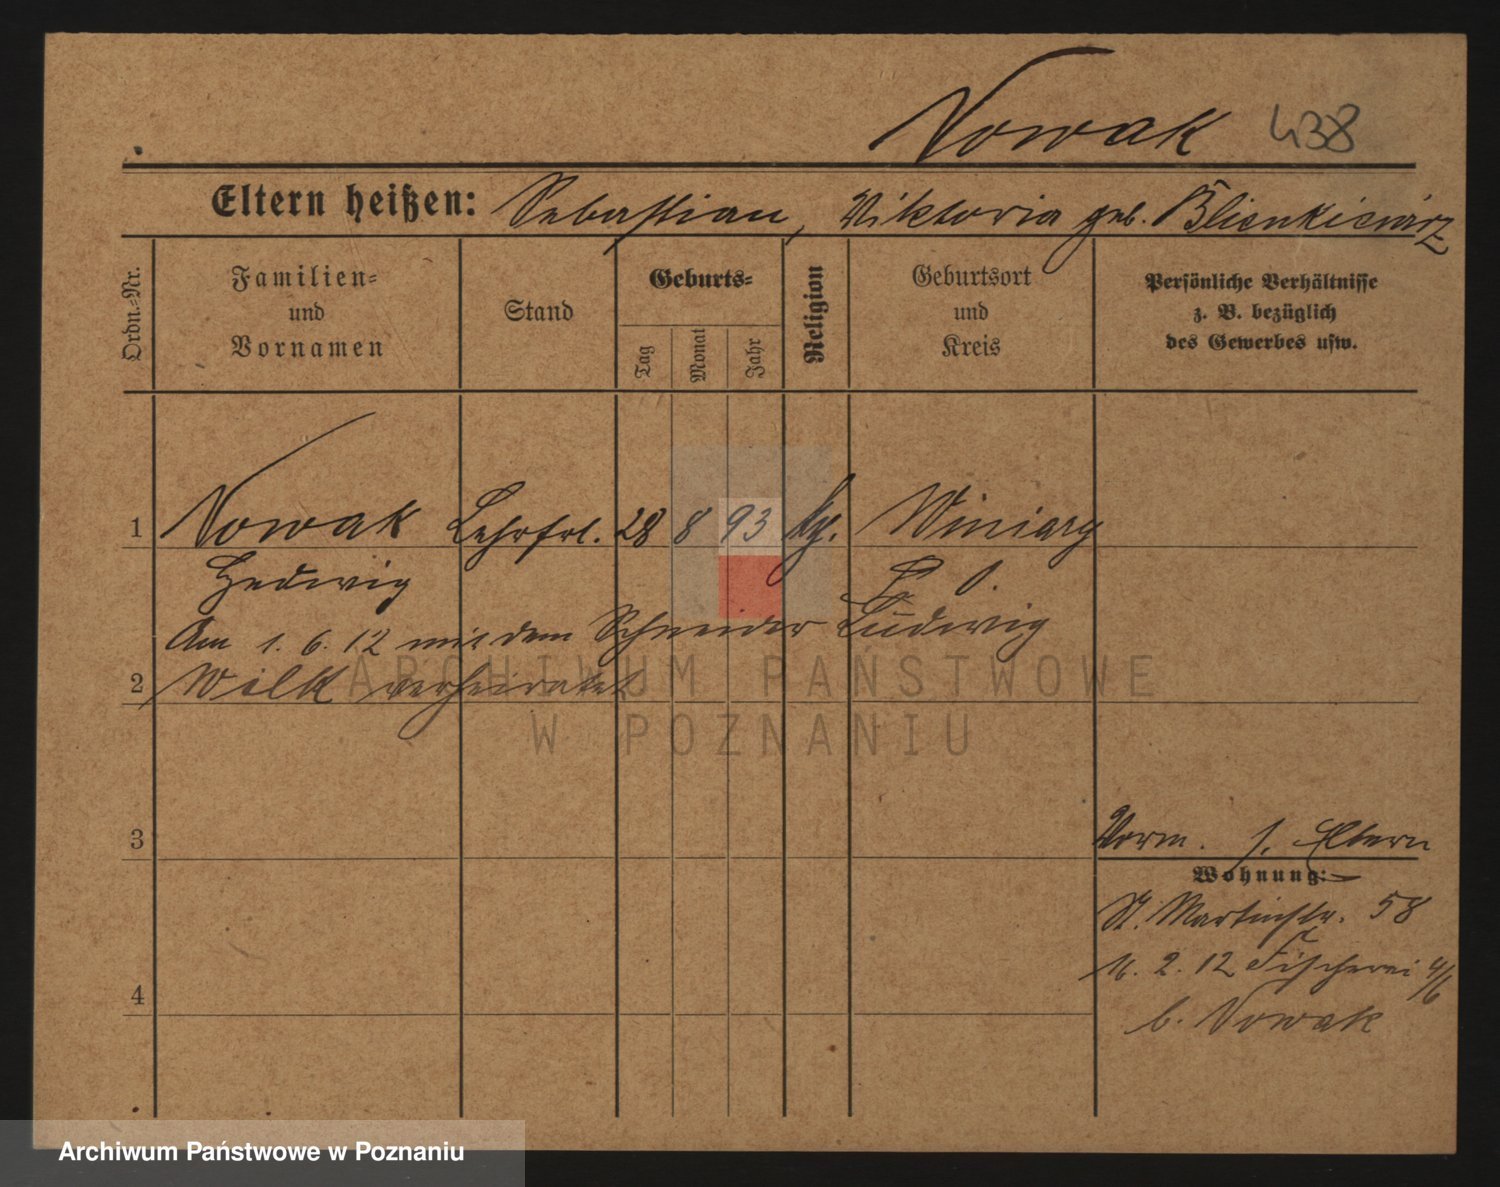 Nowak 438
Eltern heißen: Sebastian, Viktoria geb. Blienkiewicz
Ordn.-Nr.
Familien-
und
Vornamen
Stand
Geburts-
Tag
Monat
Jahr
Religion
Geburtsort
und
Kreis
Persönliche Verhältnisse
z. B. bezüglich
des Gewerbes usw.
1 Nowak Lehrfrl. 28 8 93 kath. Winiary
Hedwig P. O.
Am 1. 6. 12 mit dem Schneider Ludwig
2 Wilk verheiratet
ARCHIWUM PAŃSTWOWE
W POZNANIU
3
Vorm. s. Eltern
Wohnung:
St. Martinstr. 58
2. 12 Fischerei 4/6
4
b. Nowak
Archiwum Państwowe w Poznaniu